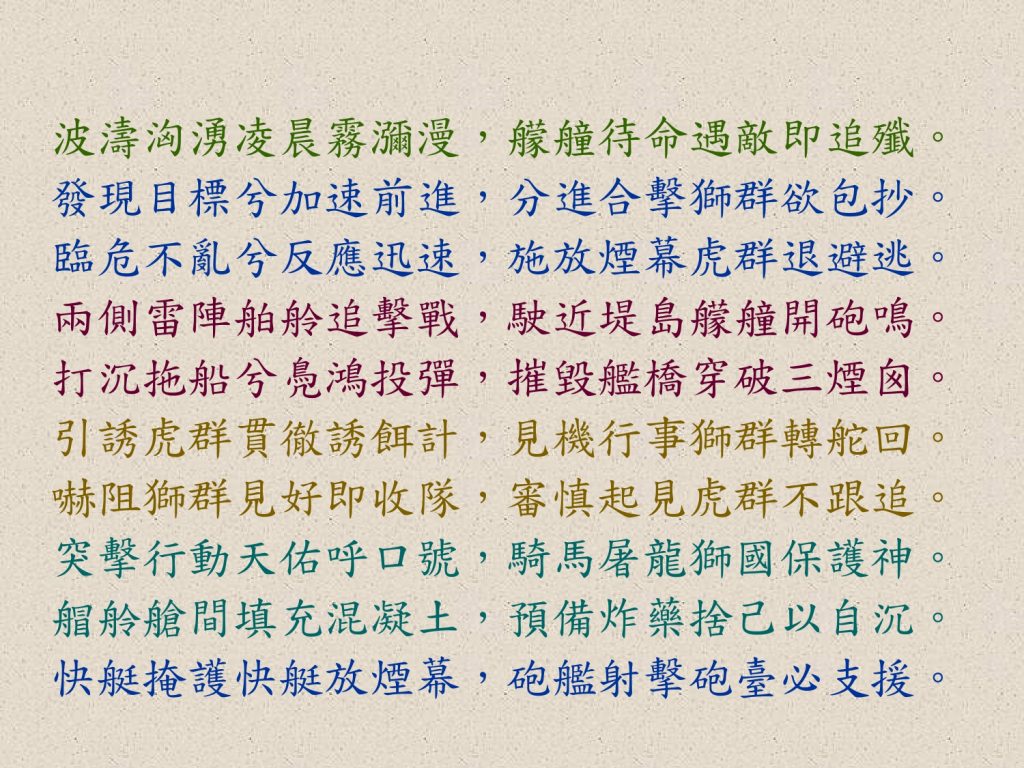 波濤洶湧凌晨霧瀰漫，艨艟待命遇敵即追殲。
發現目標兮加速前進，分進合擊獅群欲包抄。
臨危不亂兮反應迅速，施放煙幕虎群退避逃。
兩側雷陣舶舲追擊戰，駛近堤島艨艟開砲鳴。
打沉拖船兮鳧鴻投彈，摧毀艦橋穿破三煙囪。
引誘虎群貫徹誘餌計，見機行事獅群轉舵回。
嚇阻獅群見好即收隊，審慎起見虎群不跟追。
突擊行動天佑呼口號，騎馬屠龍獅國保護神。
艒舲艙間填充混凝土，預備炸藥捨己以自沉。
快艇掩護快艇放煙幕，砲艦射擊砲臺必支援。